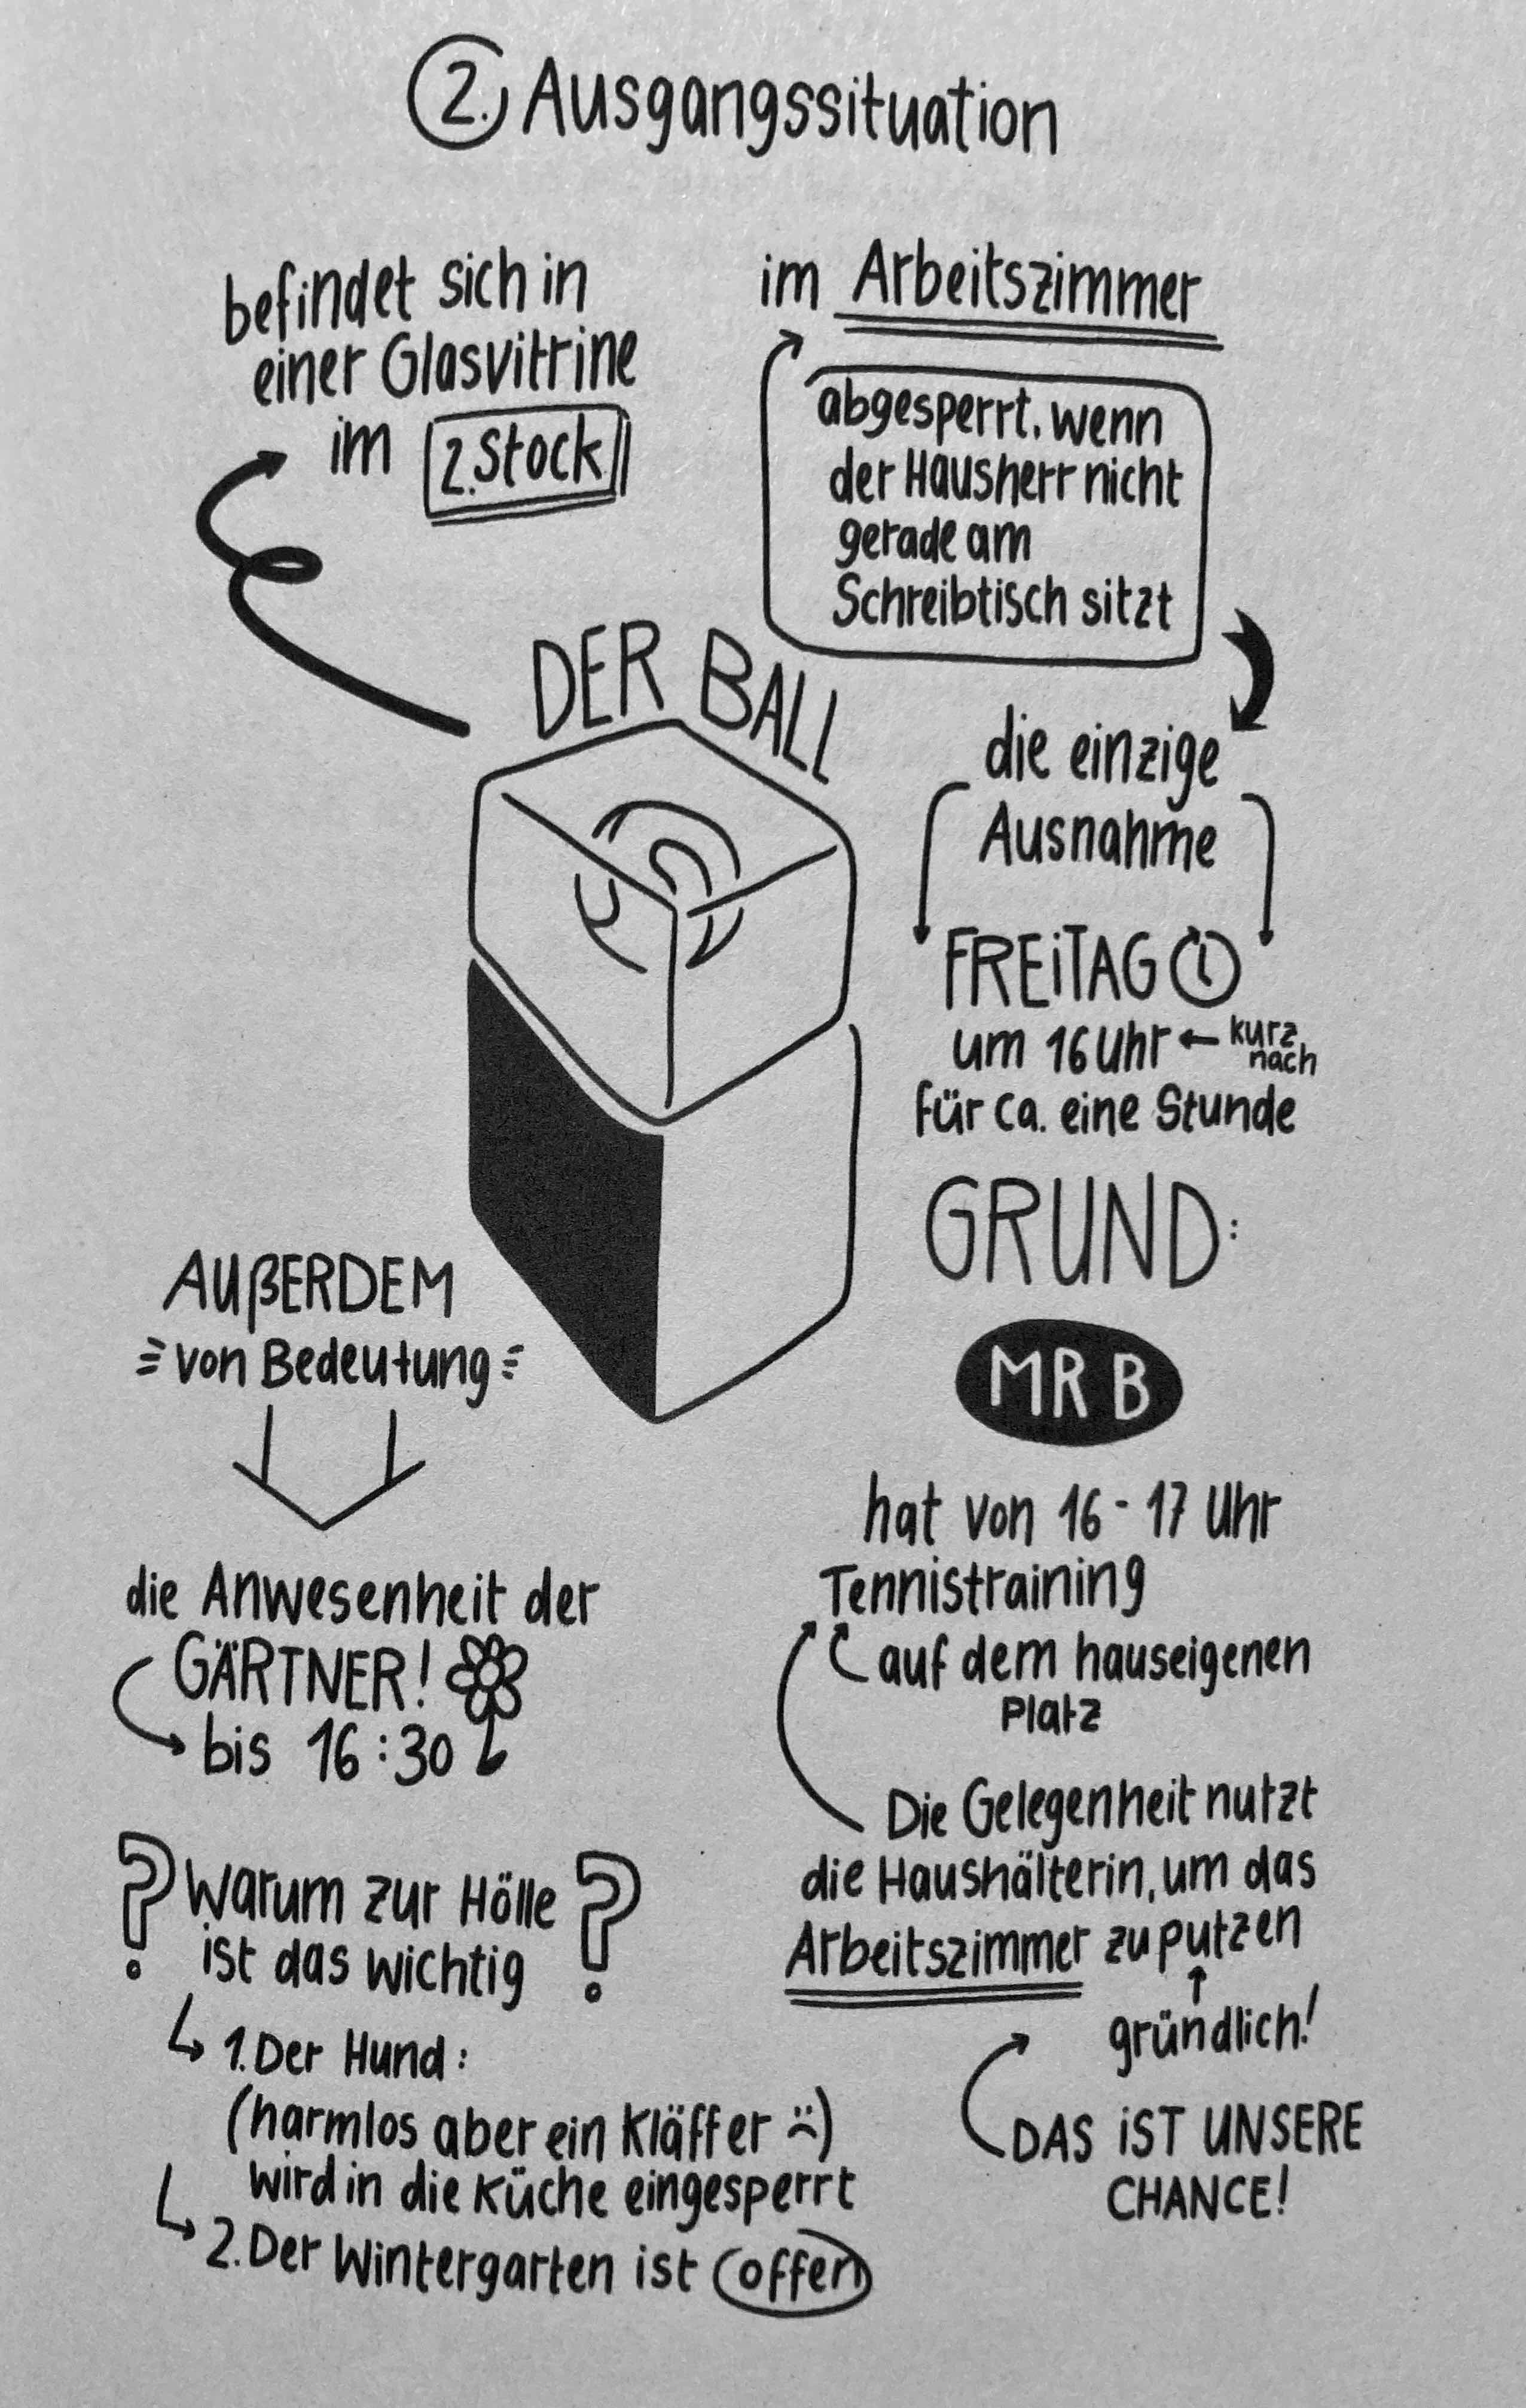 2. Ausgangssituation
befindet sich in
einer Glasvitrine
im 2. Stock
im Arbeitszimmer
abgesperrt, wenn
der Hausherr nicht
gerade am
Schreibtisch sitzt
DER BALL
die einzige
Ausnahme
FREiTAG
um 16 Uhr ← kurz
nach
für ca. eine Stunde
GRUND:
MR B
hat von 16 - 17 Uhr
Tennistraining
auf dem hauseigenen
Platz
Die Gelegenheit nutzt
die Haushälterin, um das
Arbeitszimmer zu putzen
gründlich!
DAS iST UNSERE
CHANCE!
AUßERDEM
von Bedeutung
die Anwesenheit der
GÄRTNER!
bis 16:30
? Warum zur Hölle ?
ist das wichtig
1. Der Hund:
(harmlos aber ein Kläffer :()
wird in die Küche eingesperrt
2. Der Wintergarten ist offen